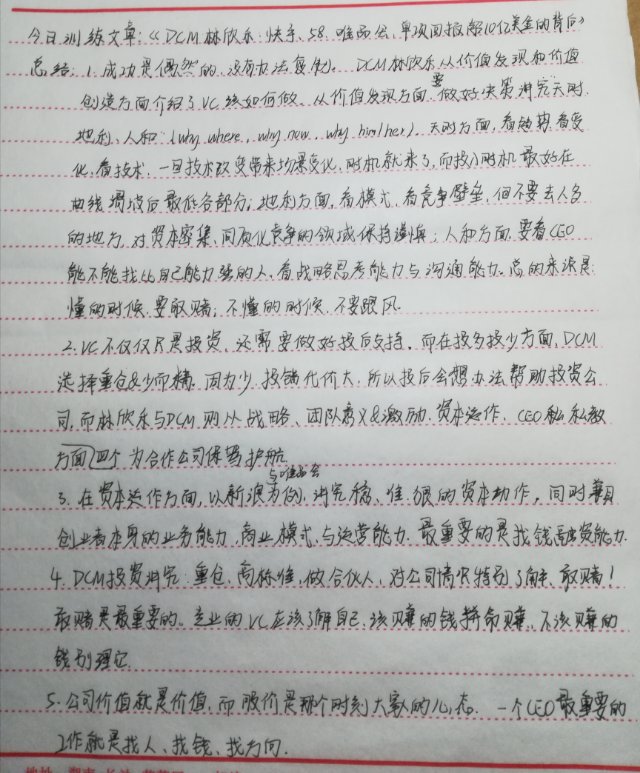 今日训练文章:《DCM林欣禾:快手、58、唯品会、单项回报超10亿美金的背后》
总结:1.成功是偶然的,没有办法复制。DCM林欣禾从价值发现和价值
创造方面介绍了VC该如何做。从价值发现方面,要做好决策讲究天时、
地利、人和:(why where, why now, why him/her)。天时方面,看趋势,看变
化,看技术,一旦技术改变带来场景变化,时机就来了,而投入时机最好在
曲线塌陷后最低谷部分;地利方面,看模式,看竞争壁垒,但不要去人多
的地方,对资本密集、同质化竞争的领域保持谨慎;人和方面,要看CEO
能不能找比自己能力强的人,看战略思考能力与沟通能力。总的来说是
懂的时候,要敢赌;不懂的时候,不要跟风
2.VC不仅仅只是投资,还需要做好投后支持。而在投多投少方面,DCM
选择重仓&少而精,因为少,投错代价大,所以投后会想办法帮助投资公
司,而林欣禾与DCM则从战略、团队意义&激励、资本运作、CEO私私教
方面四个为合作公司保驾护航
3.在资本运作方面,以新浪与唯品会为例,讲究稳、准、狠的资本动作,同时兼具
创业者本身的业务能力,商业模式,与运营能力。最重要的是找钱融资能力.
4.DCM投资讲究:重仓,高标准,做合伙人,对公司情况特别了解,敢赌!
敢赌是最重要的。专业的VC应该了解自己,该赚的钱拼命赚,不该赚的
钱别理它
5.公司价值就是价值,而股价是那个时刻大家的心态。一个CEO最重要的
工作就是找人、找钱、找方向.